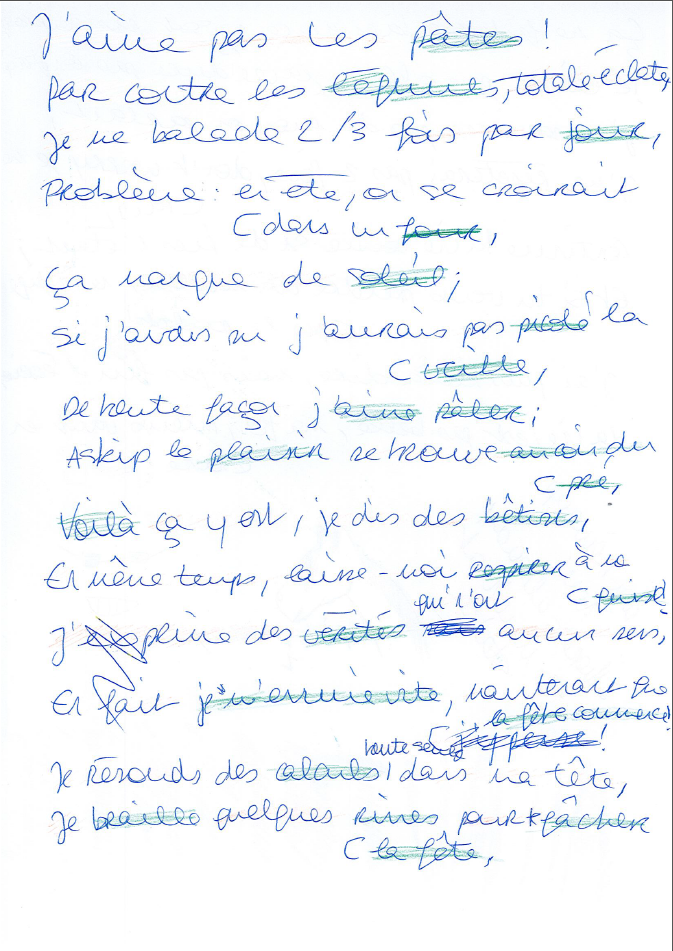 J'aime pas les pâtes !
Par contre les légumes, totale éclate,
Je me balade 2/3 fois par jour,
Problème : en été, on se croirait
(dans un four,
ça manque de soleil ;
Si j'avais su j'aurais pas picolé la
(veille,
De toute façon j'aime râler ;
Askip le plaisir se trouve au coin du
(pré,
Voilà ça y est, je dis des bêtises,
En même temps, laisse-moi respirer à ma
(guise !
J'exprime des vérités qui n'ont aucun sens,
En fait je m'ennuie vite, maintenant que
la fête commence !
Je résouds des calculs, toute seule dans ma tête,
Je braille quelques rimes pour gâcher
(la fête,